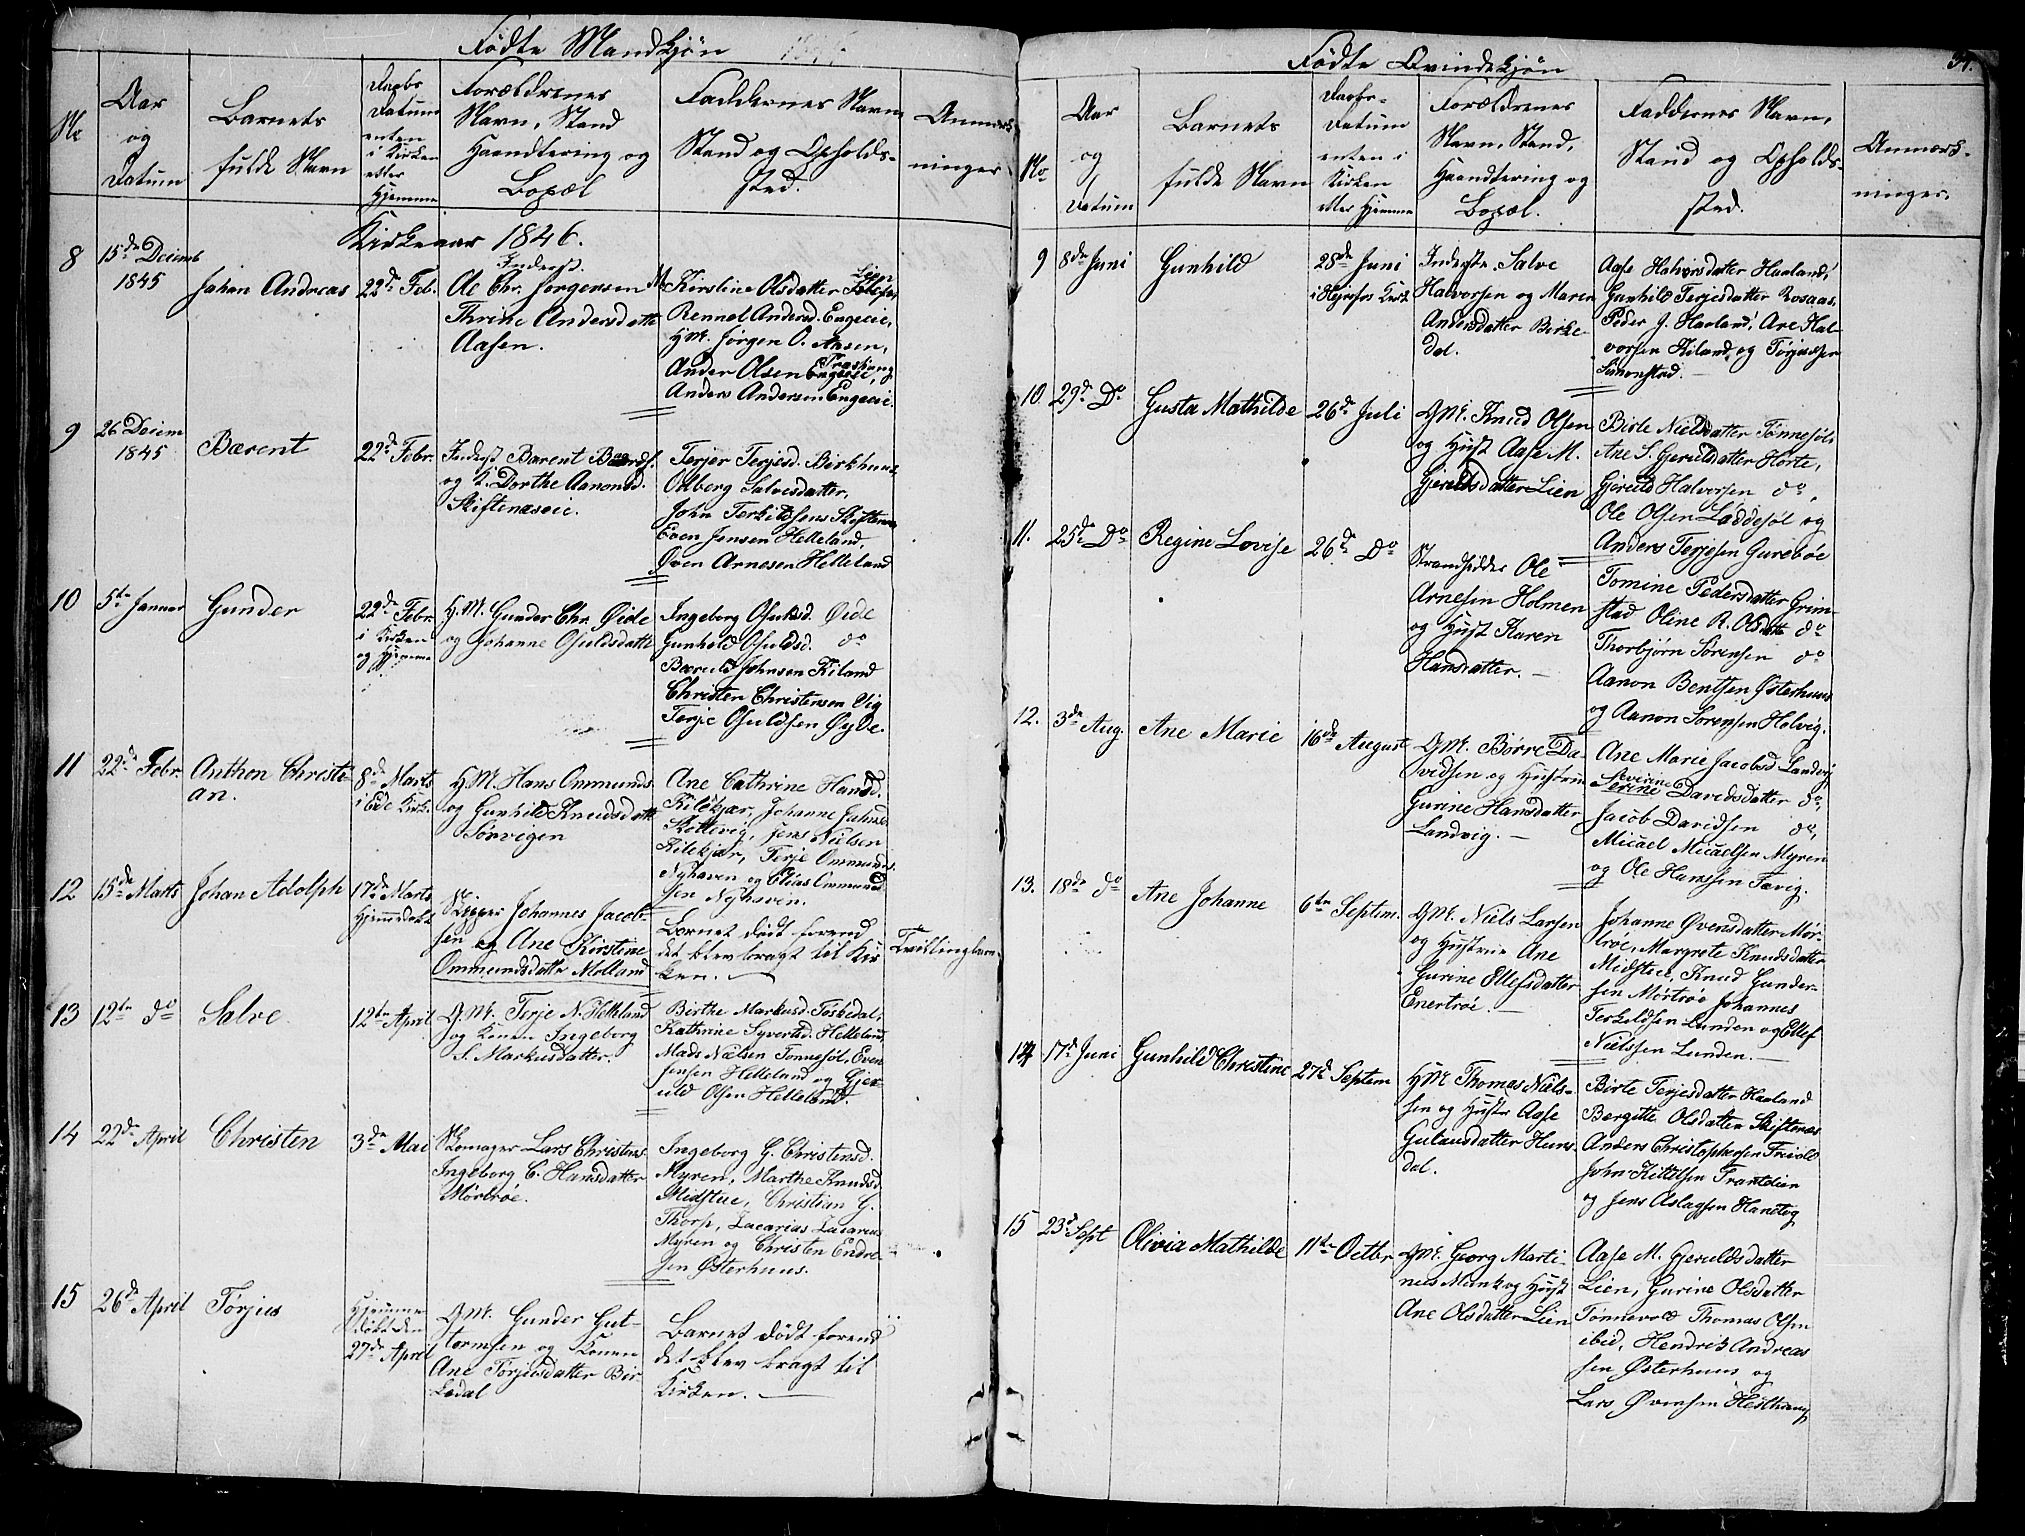 Fødte Mandkjøn
No
Aar
og
Datum
Barnets
fulde Navn
Daabs
Datum
enten
i Kirken
eller
Hjemme
Forældrenes
Navn, Stand
Haandtering og
Bopæl
Faddernes Navn
Stand og Opholds-
sted.
Anmærk-
ninger
Kirkeaar 1846.
8
15de Decemb
1845
Johan Andreas
22de Feb.
Inderst.
Ole Chr. Jørgensen
Thrine Andersdatte
Aasen.
Kirstine Olsdatter
Lien
Rennel Andersd. Engeeie,
HM. Jørgen O. Aasen,
Ander Olsen
Anders Andersen Engeeie.
9
26 Decem
1845
Bærent
22de Febr.
Inderst Bærent
og K. Dorthe Aanonsd.
Skiftenæseie.
Terjer Terjesd. Birkhuus
Odberg Salvesdatter,
John Terkildsens Skiftenæs
Even Jensen Helleland,
Øven Arnesen Helleland
10
5te Januar
Gunder
22de Febr.
i Kirken
og Hjemme
H.M. Gunder Chr. Øide
og Johanne Osuldsdatte
Ingeborg Osuldsd. Øide
Gunhild Osuldsd. do
Bærulf Johnsen Kiland
Christen Christensen Vig
Terje Osuldsen Øyde.
11
22de Febr.
Anthon Christi-
an.
8de Marts
i Eide Kirk.
H.M. Hans Ommunds.
og Gunhild Knudsdatt
Sørvigen
Ane Cathrine Hansd.
Kilekjær, Johanne Johnsd.
Skottevig, Jens Nielsen
Kilekjær, Terje Ommunds.
Nyhaven og Elias Ommund
sen Nyhavn.
12
15de Marts
Johan Adolph
17de Marts
Hjemmedøbt
Skipper Johannes Jacob-
sen og Ane Kirstine
Ommundsdatte Molland
Barnet dødt forend
det blev bragt til Kir
ken.
Tvillingbarn
13
12te do
Salve
12te April
G.M. Terje N. Helleland
og Konen Ingeborg
S. Markusdatter.
Birthe Markusd. Foskedal,
Kathrine Syvertsd. Helleland,
Mads Nielsen Tønnesøl, Even
Jensen Helleland og Gjer-
uld Olsen Helleland.
14
22de April
Christen
3de Mai
Skomager Lars Christens.
Ingeborg C. Hansdatter
Mørbrøe.
Ingeborg G. Christensd.
Myren, Marthe Knudsd.
Midstue, Christian G.
Thorp, Zacarias Zacarias
Myren og Christen Endre-
sen Østerhuus.
15
26de April
Torjus
Hjemme
døbt den
27de April
G.M. Gunder Gut-
tormsen og Konen
Ane Torjusdatter Bir
kedal
Barnet dødt forend
det blev bragt til
Kirken.
Fødte Qvindekjøn
No
Aar
og
Datum
Barnets
fulde Navn
Daabs-
Datum
enten i
Kirken
eller Hjemme
Forældrenes
Navn, Stand,
Haandtering og
Bopæl.
Faddernes Navn,
Stand og Opholds-
sted.
Anmærk-
ninger.
9
8de Juni
Gunhild
28de Juni
Inderste Salve
Halvorsen og Maren
Andersdatter Birke
dal.
Aase Halvorsdatter Haaland,
Gunhild Terjesdatter Rosaas,
Peder J. Haaland, Are Hal-
vorsen Kiland, og Torjus
Simonstad.
10.
29de Do
Gusta Mathilde
26de Juli
G.M. Knud Olsen
og Hust Aase M.
Gjeruldsdatter Lien
Birte Nielsdatter Tønnesøl,
Ane S. Gjeruldsdatter Hørte,
Gjeruld Halvorsen do,
Ole Olsen Laddesøl og
Anders Terjesen Gurebøe
11.
25de Do
Regine Lovise
26de Do
Strandsidder Ole
Arnesen Holmen
og Hust Karen
Hansdatter.
Tomine Pedersdatter Grim-
stad Oline R. Olsdatte do
Thorbjørn Sørensen do
Aanon Bentsen Østerhuus
og Aanon Sørensen Holvig.
12.
3de Aug.
Ane Marie
16de August
G.M. Børre Da-
vidsen og Hustrue
Gurine Hansdatter
Landvig.
Ane Marie Jacobsd Landvig
Severine
Serine Davidsdatter do,
Jacob Davidsen do,
Micael Micaelsen Myren
og Ole Hansen Tøvig.
13.
18de do
Ane Johanne
6te Septem.
G.M. Niels Larsen
og Hustrue Ane
Gurine Ellefsdatter
Enertrøe.
Johanne Øvensdatter Mør-
trøe, Margrete Knudsdatter
Midstue, Knud Gunder-
sen Mørtrøe Johannes
Terkeldsen Lunden og Ellef
Nielssen Lunden.
14
17de Juni
Gunhild Christine
27de Septem
HM Thomas Niels-
sen og Hustr Aase
Gulausdatter Huns-
dal.
Birte Terjesdatter Haaland
Bergitte Olsdatter Skiftenæs
Anders Christophersen Frivold
John Kittilsen
og Jens Aslagsen
15
23de Sept
Olivia Mathilde
11te Octbr
G.M. Georg Marti-
nius Munk og Hust
Ane Olsdatter Lien
Aase M. Gjeruldsdatter
Lien, Gurine Olsdatter
Tønnevold Thomas Olsen
ibid, Hendrik Andreas
sen Østerhuus og
Lars Øvensen